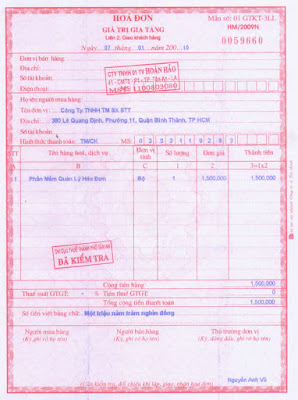 HOÁ ĐƠN
GIÁ TRỊ GIA TĂNG
Liên 2: Giao khách hàng
Ngày 07 tháng 01 năm 200 10
Mẫu số: 01 GTKT-3LL
HM/2009N
0059660
Đơn vị bán hàng:
Địa chỉ:
Số tài khoản:
Điện thoại:
CTY TNHH 01 TV HOÀN HẢO
MS: 1100803080
Họ tên người mua hàng:
Tên đơn vị: Công Ty TNHH TM SX STT
Địa chỉ: 380 Lê Quang Định, Phường 11, Quận Bình Thành, TP HCM
Số tài khoản:
Hình thức thanh toán: TM/CK MS:
STT Tên hàng hoá, dịch vụ Đơn vị tính Số lượng Đơn giá Thành tiền
A B C 1 2 3=1x2
1 Phần Mềm Quản Lý Hóa Đơn Bộ 1 1,500,000 1,500,000
ĐÃ KIỂM TRA
Cộng tiền hàng 1,500,000
Thuế suất GTGT: - % Tiền thuế GTGT 0
Tổng cộng tiền thanh toán 1,500,000
Số tiền viết bằng chữ: Một triệu năm trăm nghìn đồng
Người mua hàng Người bán hàng Thủ trưởng đơn vị
(Ký, ghi rõ họ tên) (Ký, ghi rõ họ tên) (Ký, đóng dấu, ghi rõ họ tên)
Nguyễn Anh Vũ
(Cần kiểm tra, đối chiếu khi lập, giao, nhận hoá đơn)